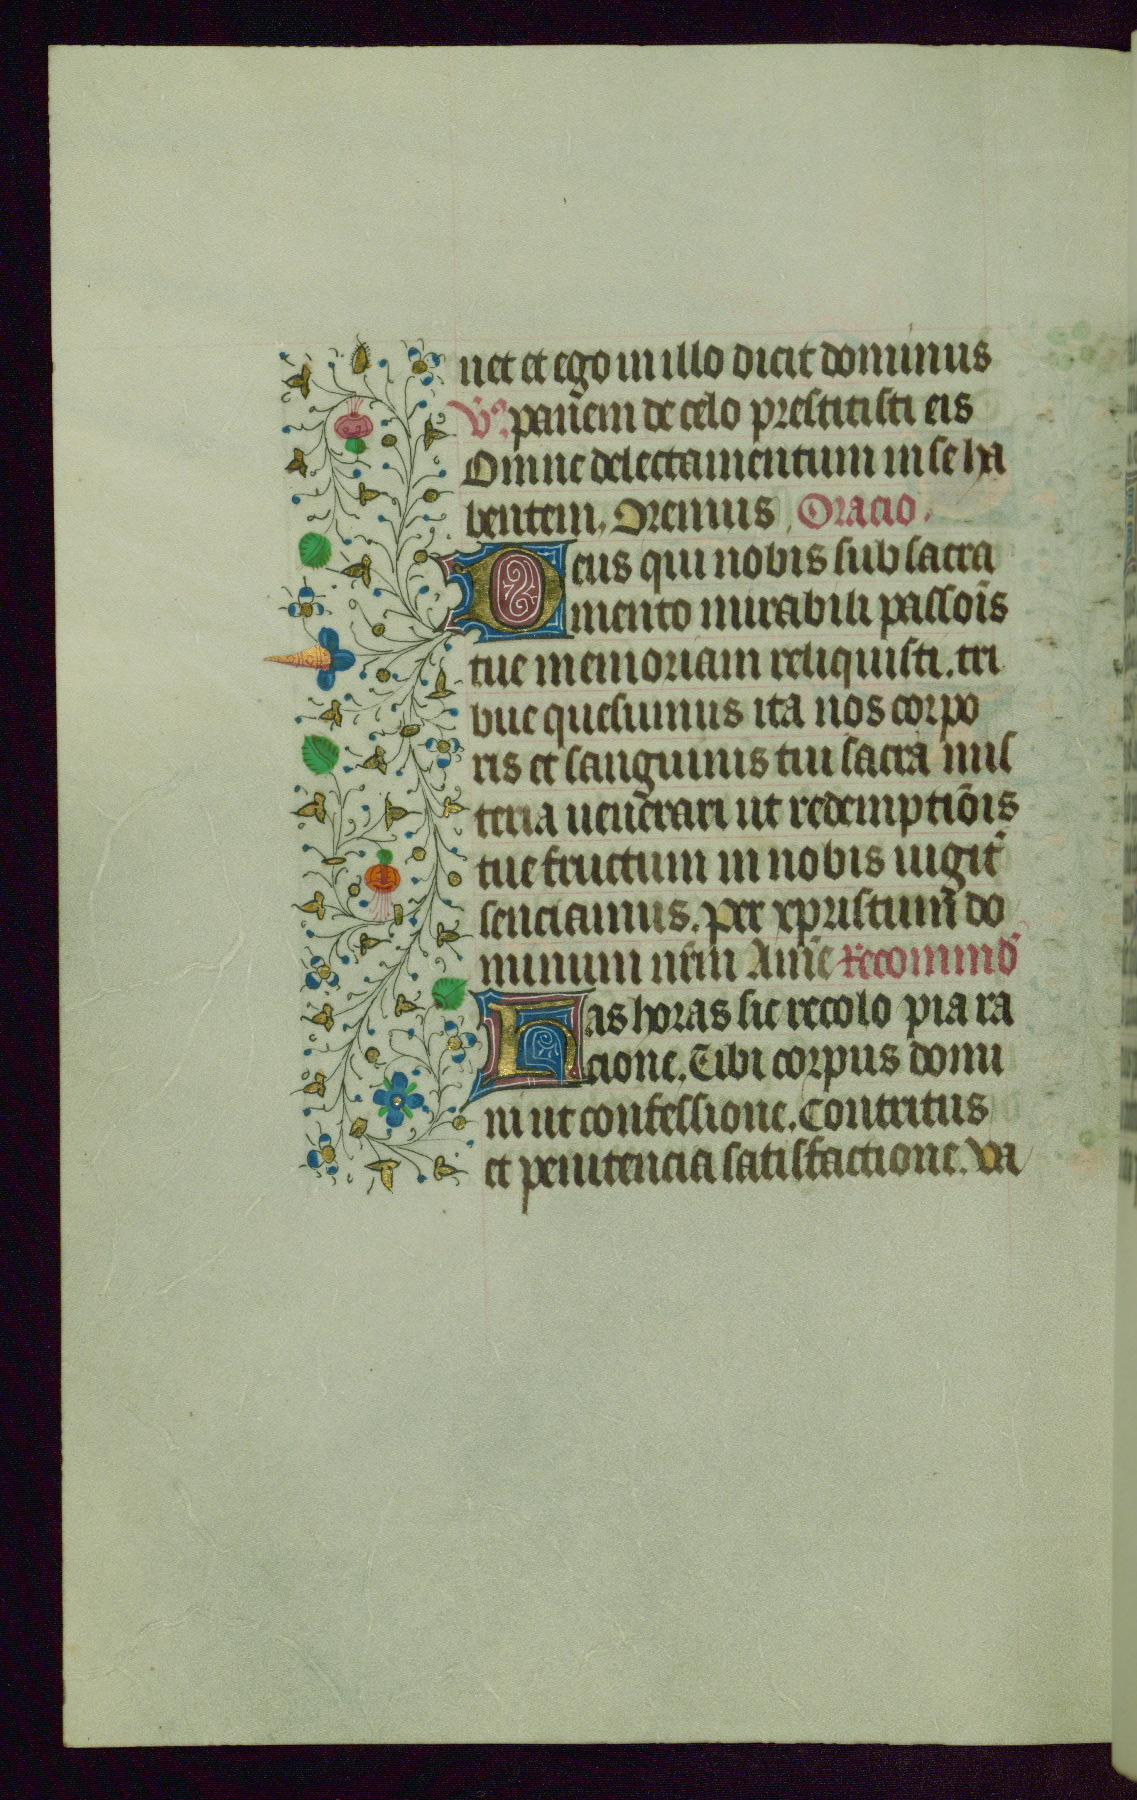 net et ego in illo dicit dominus
V̄s. pan̄em de celo prestitisti eis
Omne delectamentum in se ha
bentem. Oremus. Oracio.
Deus qui nobis sub sacra
mento mirabili passoīs
tue memoriam reliquisti. tri
bue quesumus ita nos corpo
ris et sanguinis tui sacra mis
teria uen̄erari ut redemptiōis
tue fructum in nobis iugit̄
senciamus. Per xpristum̄ do
minum nr̄m Am̄e Recommd̄
Has horas sic recolo pia ra
cione. Tibi corpus domi
ni ut confessione. Contritus
et penitencia satisfactione. Va